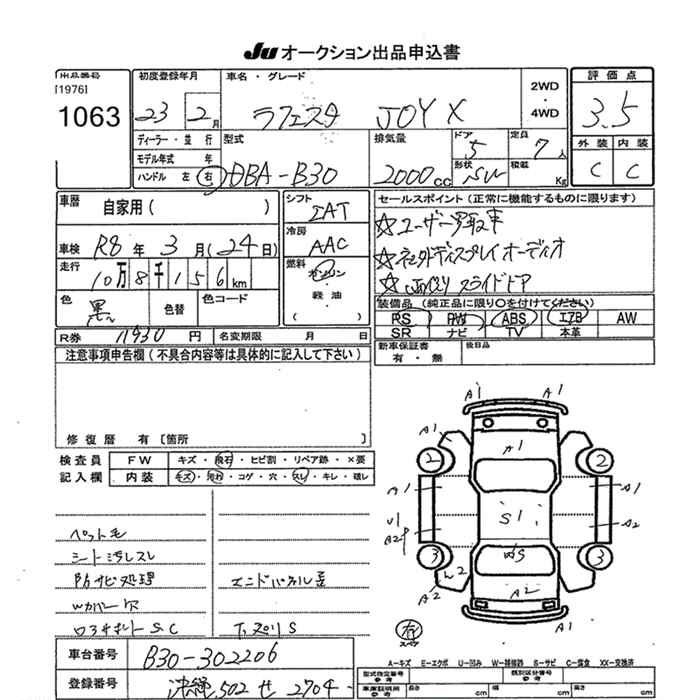 JU オークション出品申込書
出品番号
[1976]
1063
初度登録年月
23 2月
車名・グレード
ラフェスタ JOY X
2WD
・
4WD
評価点
3.5
ディーラー・並行
モデル年式 年
ハンドル 左 右
型式
DBA-B30
排気量
2000cc
ドア
5
形状
SW
定員
7人
積載
Kg
外装 内装
C C
車歴
自家用( )
シフト
IAT
車検 R8年 3月(24日)
冷房
AAC
走行
10万8千156km
燃料
ガソリン
・
軽油
・
( )
色
黒
色替
色コード
R券 11930円
名変期限 月 日
セールスポイント(正常に機能するものに限ります)
☆ユーザー買取車
☆社外ディスプレイオーディオ
☆両側スライドドア
装備品(純正品に限り○を付けてください)
PS PW ABS エアB AW
SR ナビ TV 本革
新車保証書
有・無
後日品
注意事項申告欄(不具合内容等は具体的に記入して下さい)
修復歴 有〔箇所 〕
検査員
記入欄
FW キズ・飛石・ヒビ割・リペア跡・×要
内装 キズ・汚れ・コゲ・穴・スレ・キレ・破レ
ペット毛
シート汚レスレ
防サビ処理
エンドパネル歪
Wカバー穴
ロヲサポートS.C
下廻りS
A1 A1
A1 A1 A1
2 2
A1 A1
S1
U1 A2
A2P
3 3
WS
A2 A2
A1
有
スペア
A-キズ E-エクボ U-凹み W-補修跡 S-サビ C-腐食 XX-交換済
車台番号 B30-302206
登録番号 沖縄 502 せ 2704
型式指定番号
参考
類別区分番号
参考
車庫証明
参考
長さ cm
幅 cm
高さ cm